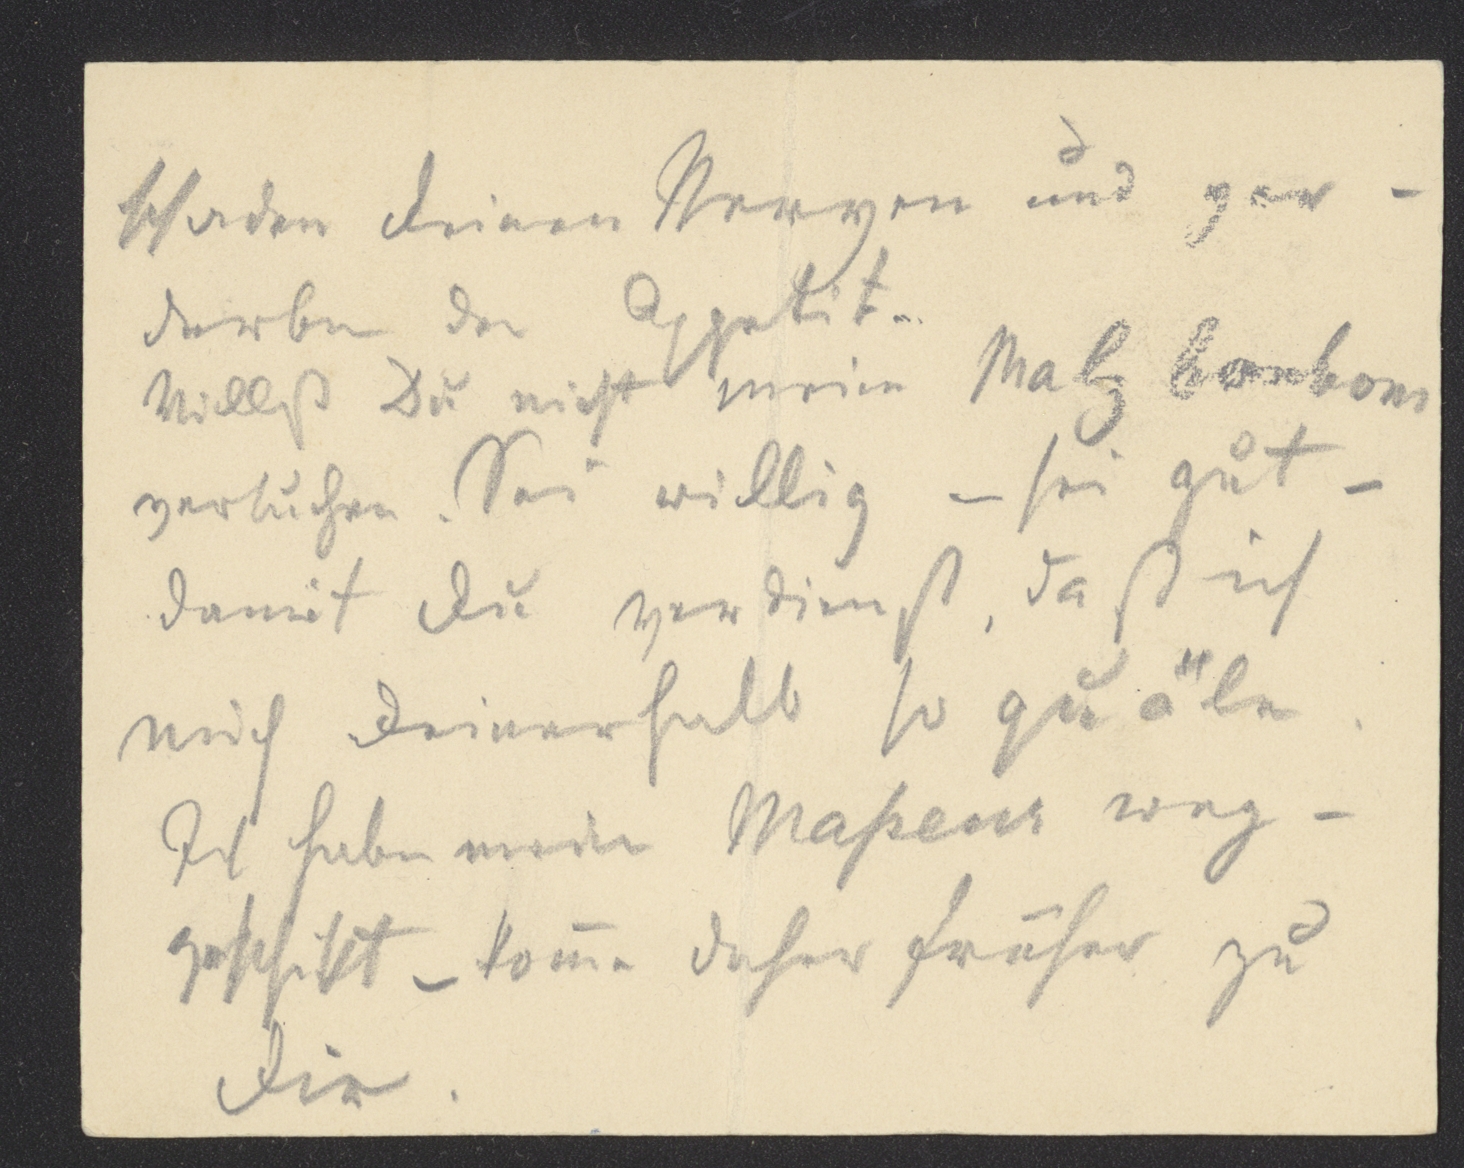 schaden deinen Nerven und ver-
derben den Appetit.
Willst Du nicht meine Malzbonbons
versuchen. Sei willig – sei gut –
damit Du verdienst, daß ich
mich Deinerhalb so quäle.
Ich habe meinen Masseur weg-
geschikt – kom̅e daher früher zu
Dir.